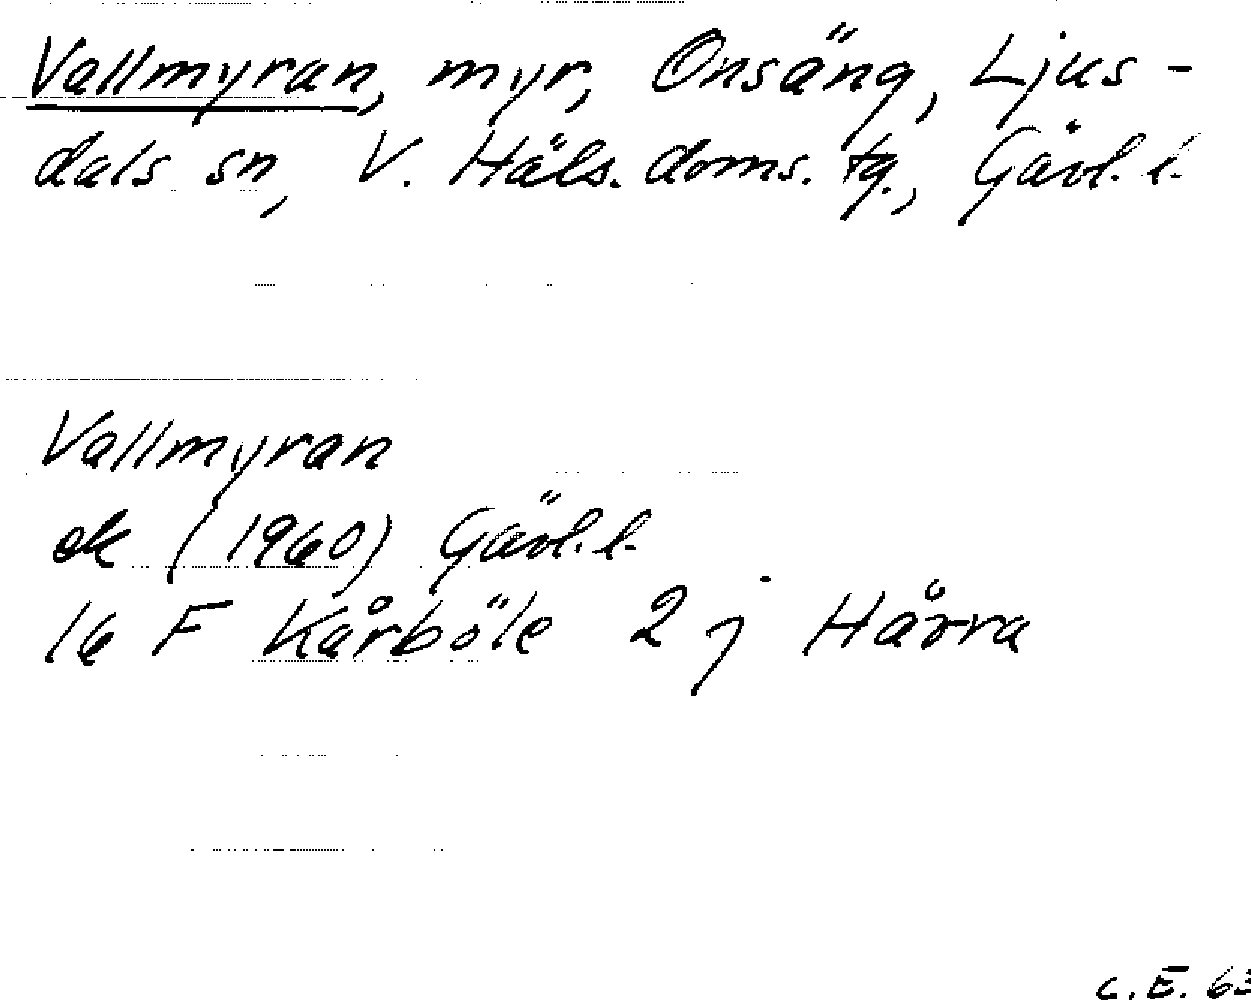 Vallmyran, myr, Onsäng, Ljus-
dals sn, V. Häls. doms. tg., Gävl. l.
Vallmyran
ek (1960) Gävl. l.
16 F Kårböle 2 j Hårra
C. E. 63